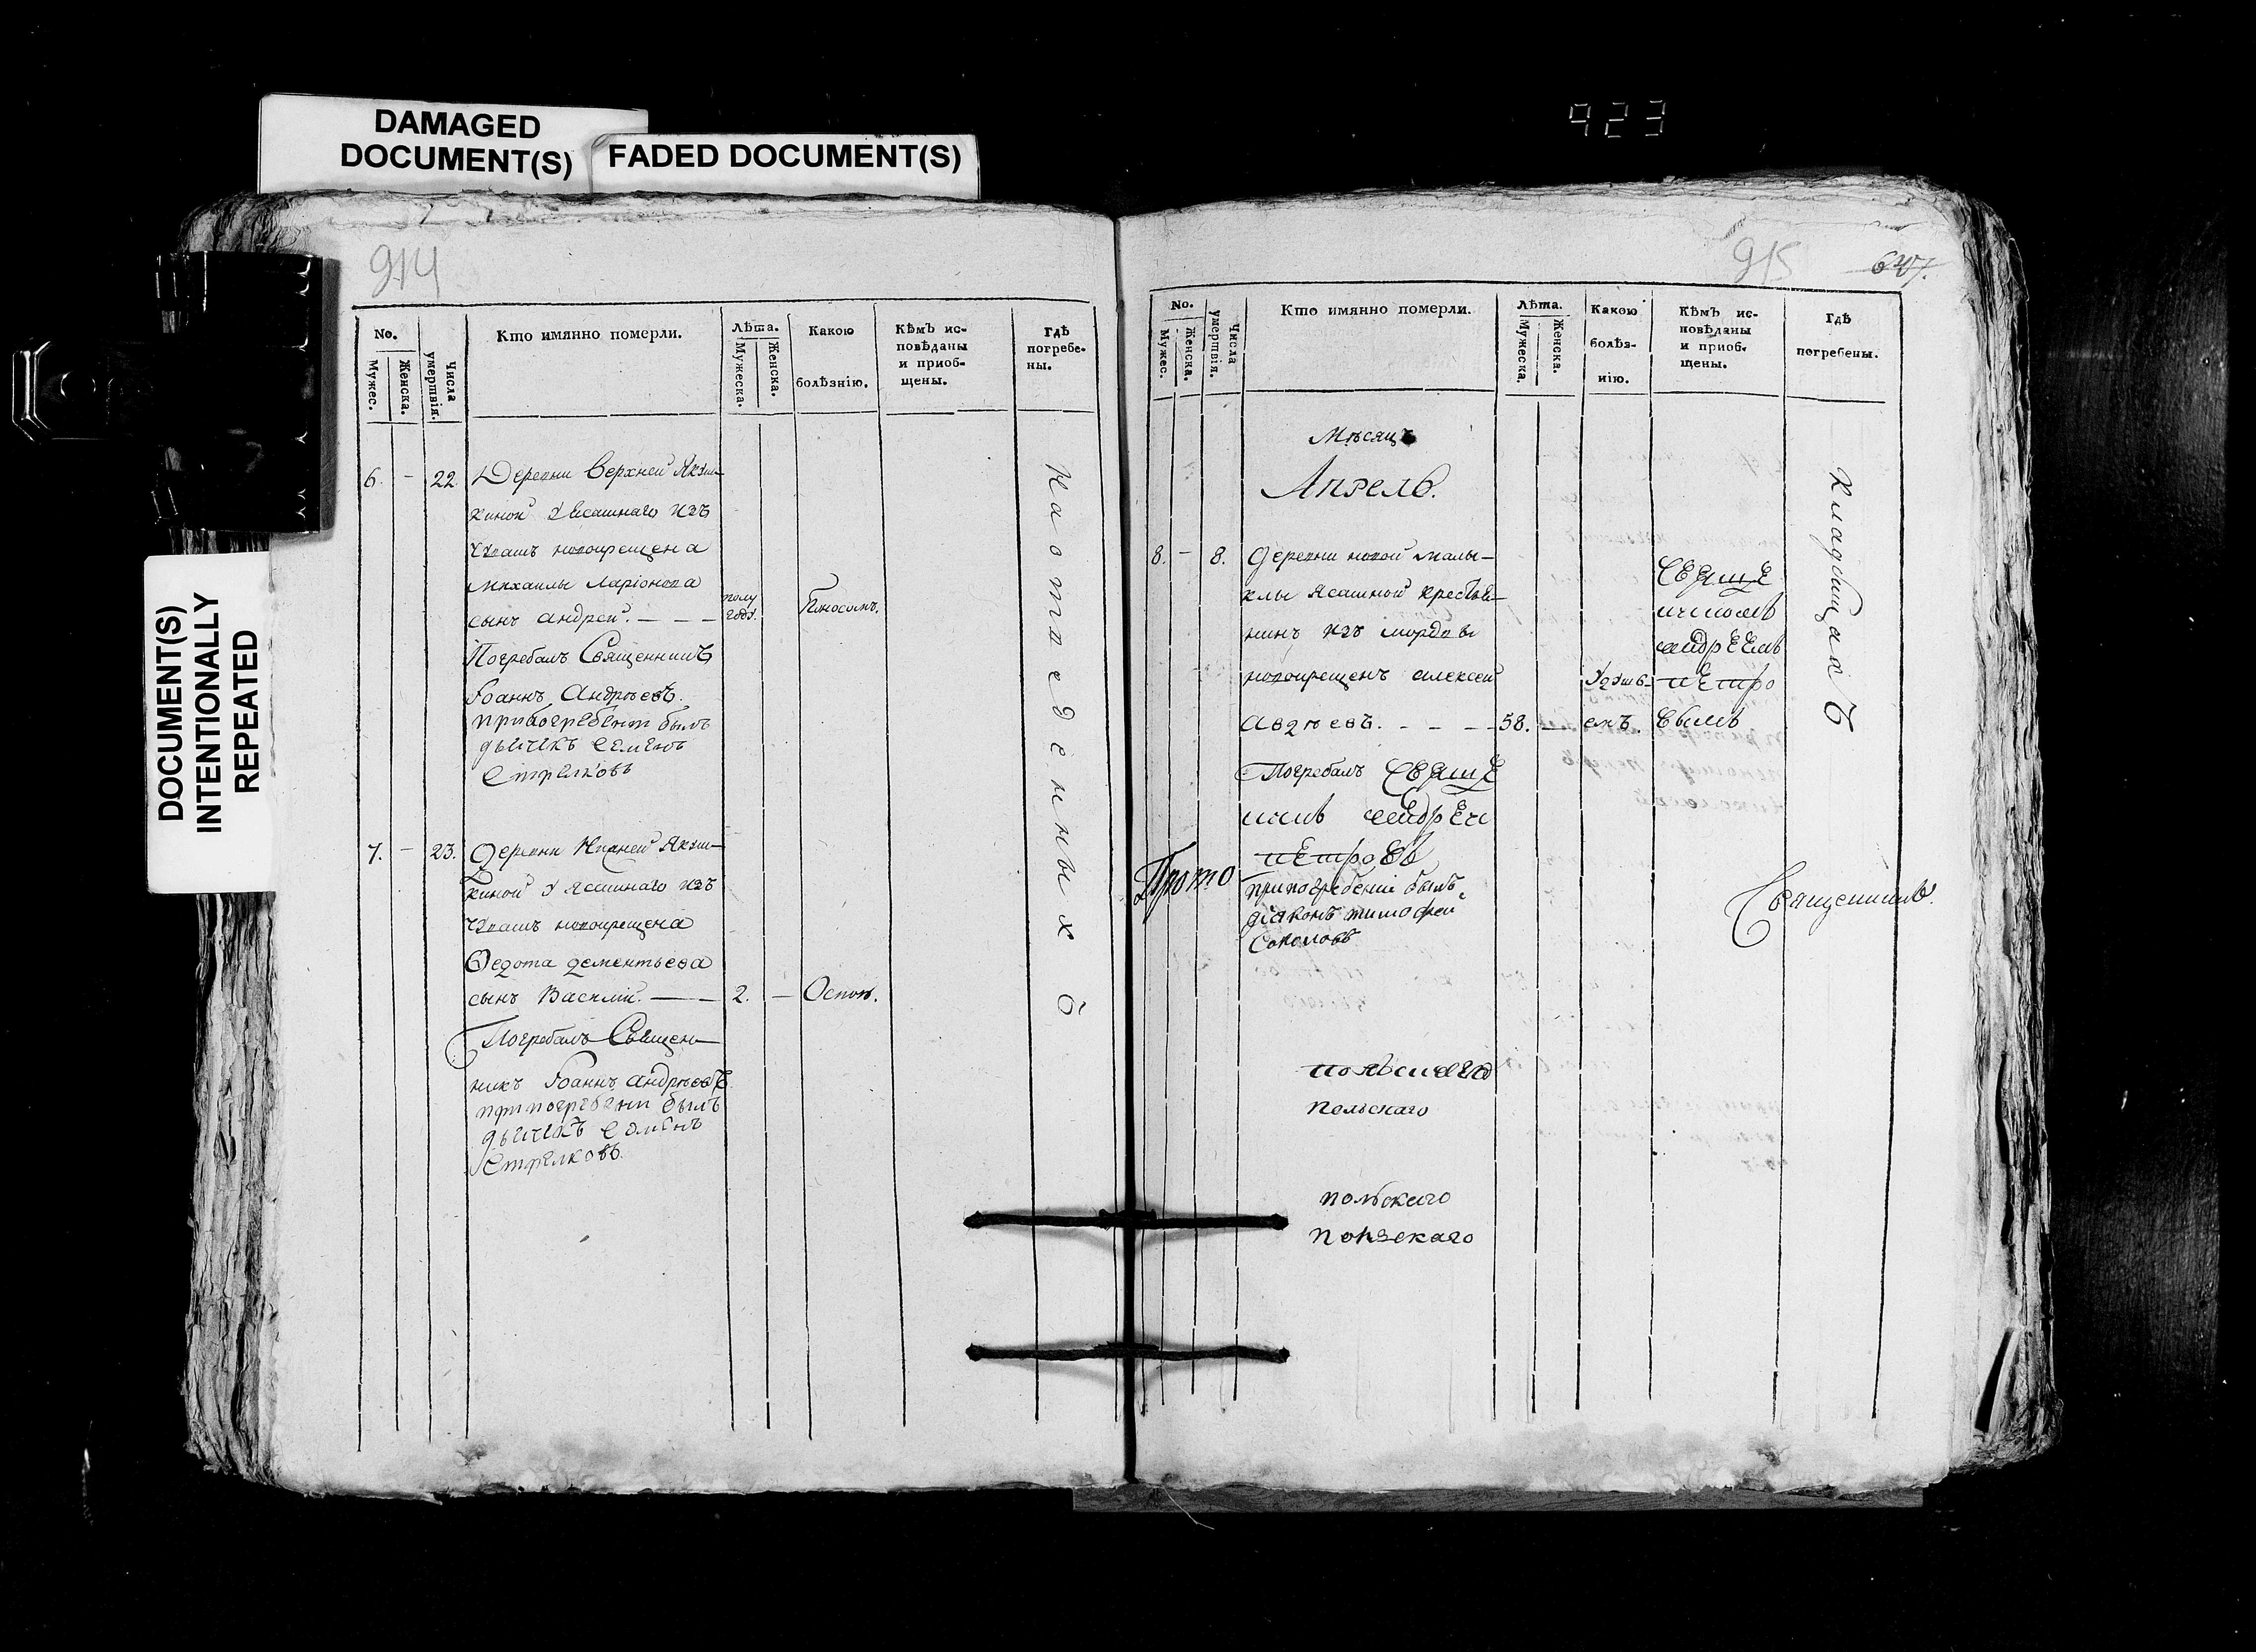 DAMAGED
DOCUMENT(S)
FADED DOCUMENT(S)
923
DOCUMENTS(S)
INTENTIONALLY
REPEATED
914
No.
Мужес.
Женска.
Числа
умертвія.
Кто имянно померли.
Лѣта.
Мужеска.
Женска.
Какою
болѣзнію.
Кѣмъ ис-
повѣданы
и приоб-
щены.
Гдѣ
погребе-
ны.
6. - 22. Деревни Верхней Якуш-
киной У Ясашнаго изъ
Чувашъ новокрещена
Михаилы Ларіонова
сынъ андрей. - - - полу году. Поносомъ.
Погребалъ Священникъ
Іоаннъ Андрѣевъ.
припогребени былъ
дьячекъ Семенъ
Стрелковъ
7. - 23. Деревни Нижней Якуш-
киной У Ясашнаго изъ
Чувашъ новокрещена
Ѳедота дементьева
сынъ Василій. - - 2. - Оспою.
Погребалъ Священ-
никъ Іоаннъ андрѣевъ
припогребени былъ
дьячекъ Семенъ
Стрелковъ.
На отведенныхъ
915
647.
No.
Мужес.
Женска.
Числа
умертвія.
Кто имянно померли.
Лѣта.
Мужеска.
Женска.
Какою
болѣз-
нію.
Кѣмъ ис-
повѣданы
и приоб-
щены.
Гдѣ
погребены.
Мѣсяцъ
Апрель.
8. - 8. деревни новой малы-
клы Ясашной крестья-
нинъ изъ мордвы
новокрещенъ алексей
Авдѣевъ. - - - 58. -
Погребалъ Свяще
никъ андрей
петровъ
припогребеніи былъ
діаконъ тимофей
Соколовъ
Удуш-
емъ.
Свяще
нникомъ
андреемъ
петро
вымъ
кладбищахъ
Прото
Священникъ.
польскаго
польскаго